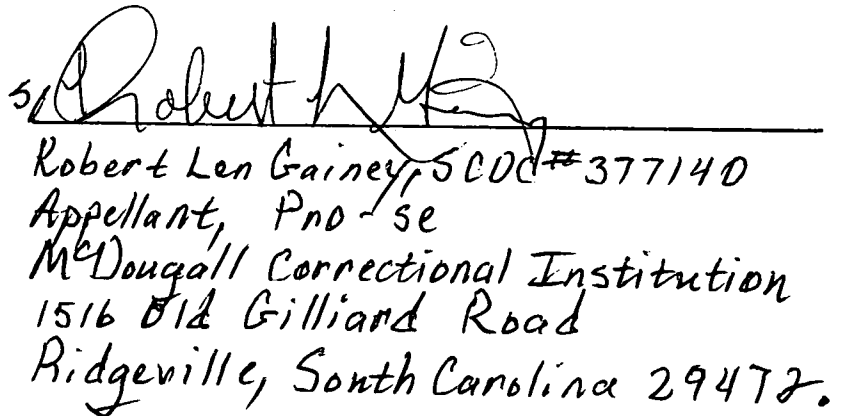 s/ Robert L Gainey
Robert Len Gainey, SCDC #377140
Appellant, Pro-se
McDougall Correctional Institution
1516 Old Gilliard Road
Ridgeville, South Carolina 29472.